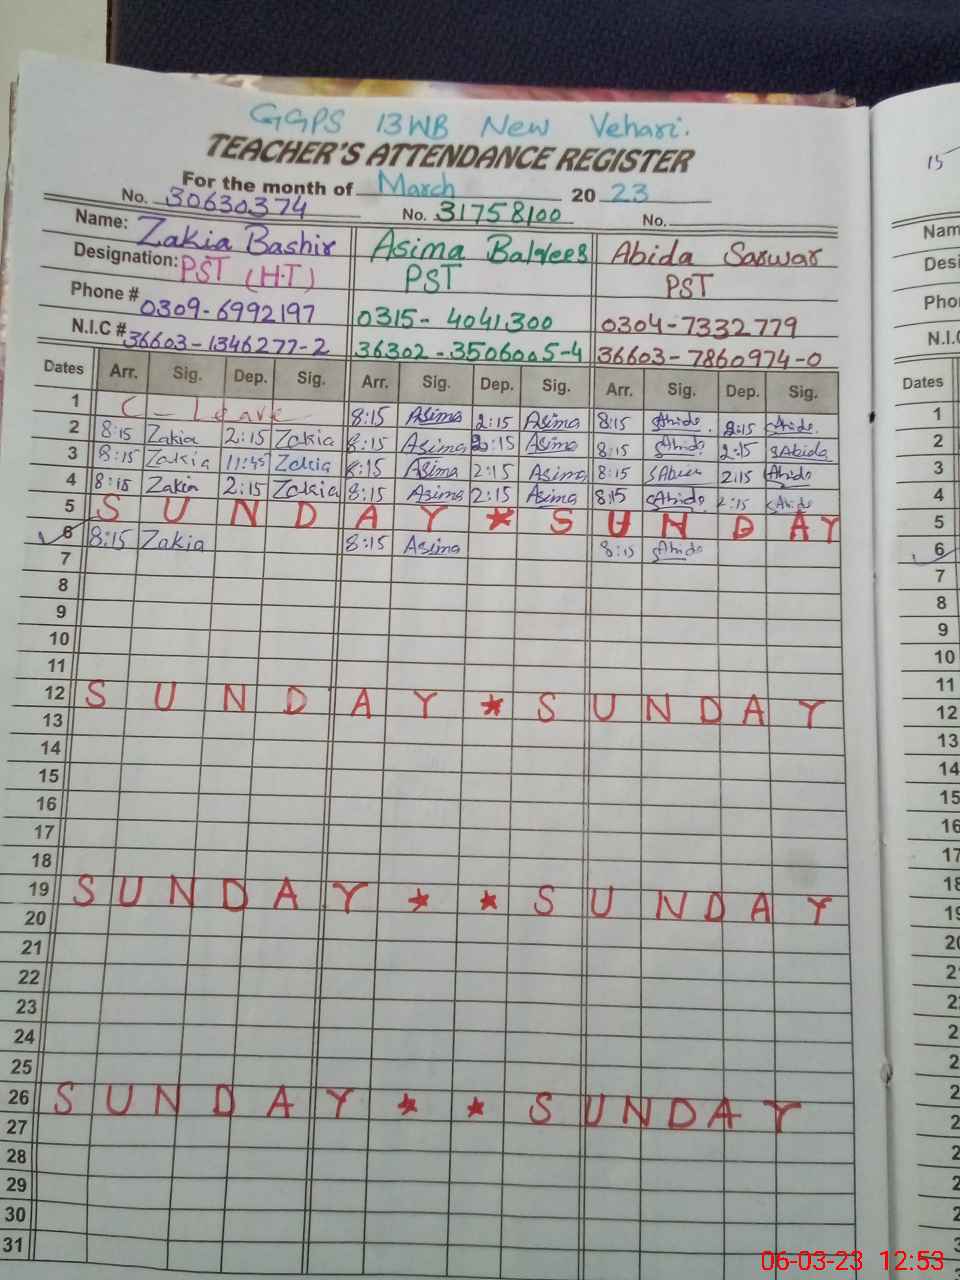 GGPS 13WB New Vehari.
TEACHER'S ATTENDANCE REGISTER
For the month of March 2023
No. 30630374 No. 31758100 No.
Name: Zakia Bashir Asima Balqees Abida Sarwar
Designation: PST (H.T) PST PST
Phone # 0309-6992197 0315-4041300 0304-7332779
N.I.C # 36603-1346277-2 36302-3506005-4 36603-7860974-0
Dates Arr. Sig. Dep. Sig. Arr. Sig. Dep. Sig. Arr. Sig. Dep. Sig.
1 C-Leave 8:15 Asima 2:15 Asima 8:15 sAbida 2:15 sAbida
2 8:15 Zakia 2:15 Zakia 8:15 Asima 2:15 Asima 8:15 sAbida 2:15 sAbida
3 8:15 Zakia 11:45 Zakia 8:15 Asima 2:15 Asima 8:15 sAbida 2:15 sAbida
4 8:15 Zakia 2:15 Zakia 8:15 Asima 2:15 Asima 8:15 sAbida 2:15 sAbida
5 SUNDAY * SUNDAY
6 8:15 Zakia 8:15 Asima 8:15 sAbida
7
8
9
10
11
12 SUNDAY * SUNDAY
13
14
15
16
17
18
19 SUNDAY * * SUNDAY
20
21
22
23
24
25
26 SUNDAY * * SUNDAY
27
28
29
30
31
15
Dates
1
2
3
4
5
6
7
8
9
10
11
12
13
14
15
16
17
06-03-23 12:53